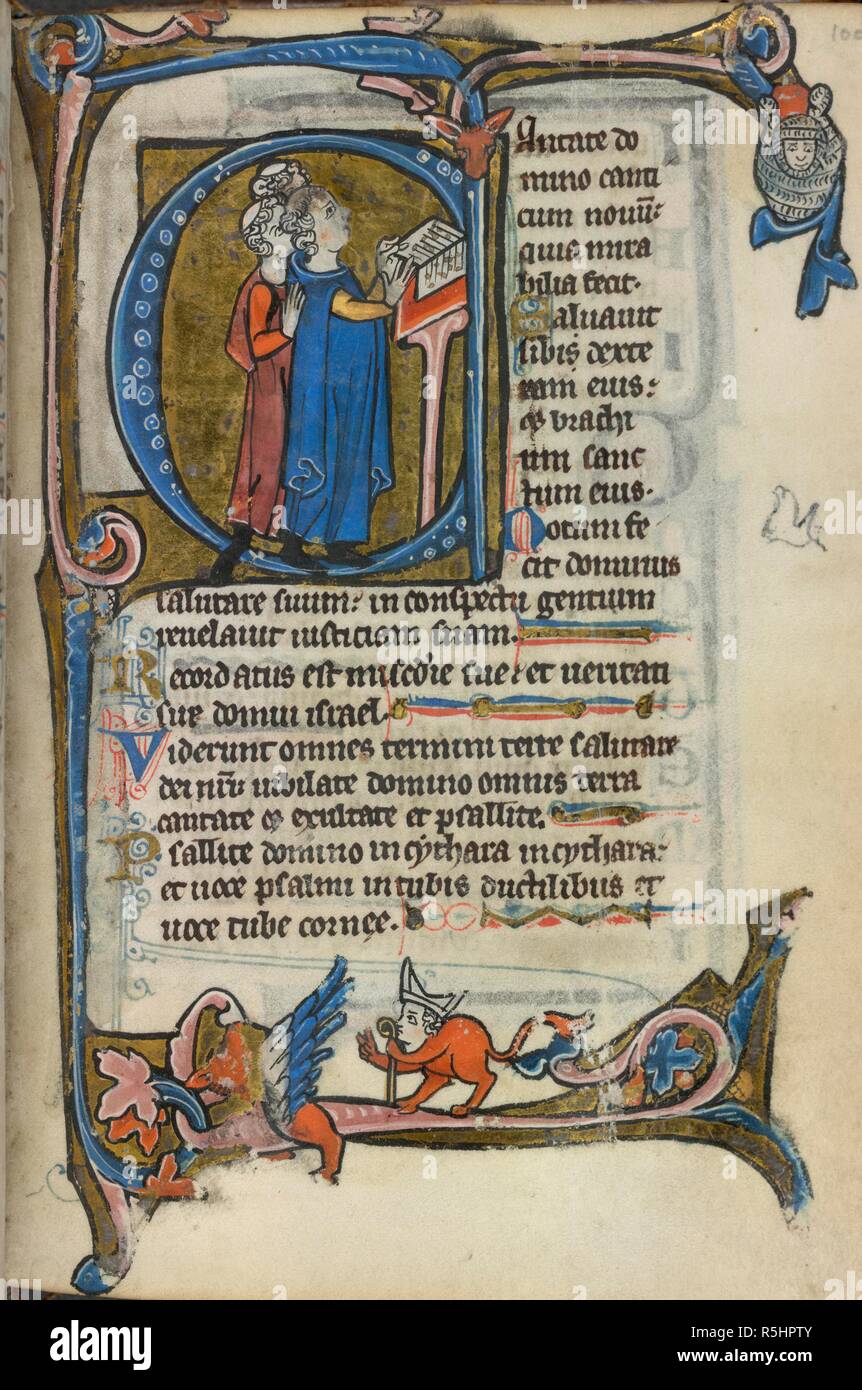 Antate do
mino canti
cum nouū:
quia mira
bilia fecit.
Saluauit
sibi dexte
ram eius:
et brachi
um sanc
tum eius.
Notum fe
cit dominus
salutare suum: in conspectu gentium
reuelauit iusticiam suam.
Recordatus est misc̄o̅rie sue: et ueritati
sue domui israel.
Viderunt omnes termini terre salutare
dei nr̄i iubilate domino omnis terra
cantate et exultate et psallite.
Psallite domino in cythara in cythara:
et uoce psalmi in tubis ductilibus et
uoce tube cornee.
100
a
alamy
Image ID: R5HPTY
www.alamy.com